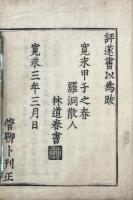 評遂書以爲跋
寛永甲子之春
羅洞散人
林道春書
寛永三年三月日
菅聊卜刊正